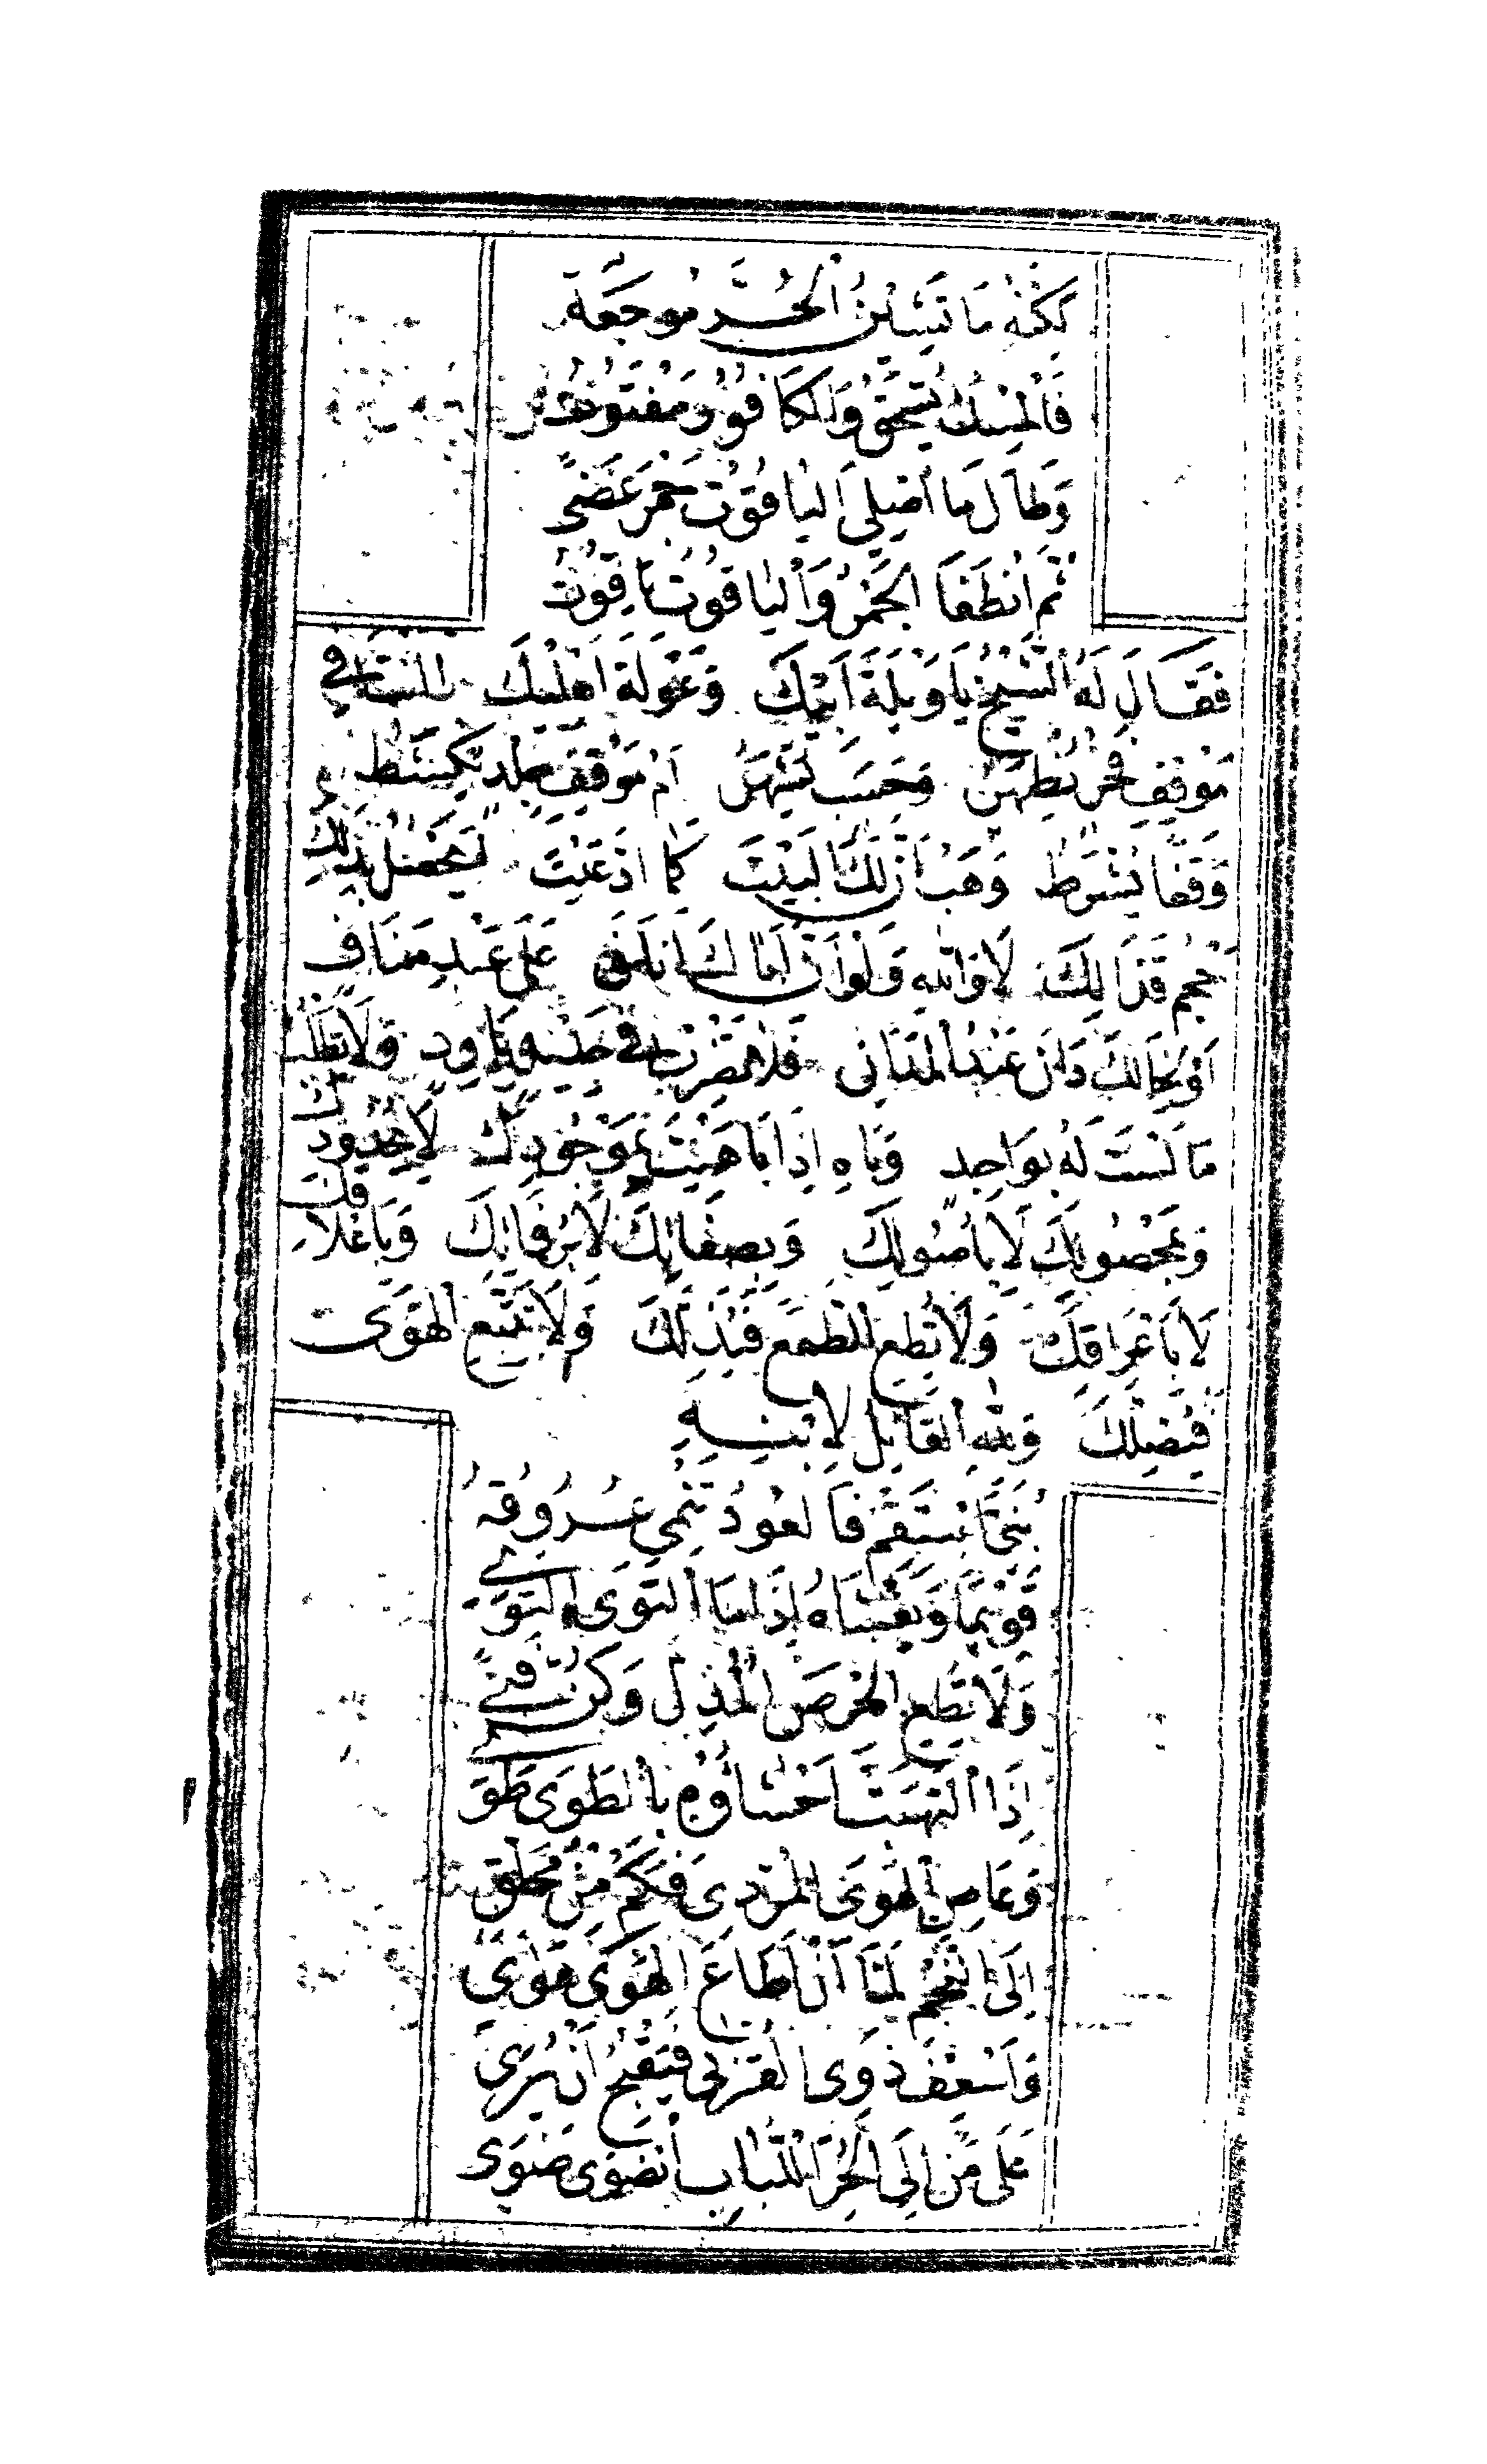 لكنه ما تشين الحر موجعة
فالمسك يسحق والكافور مفتوت
وطال ما أصلي الياقوت جمر غضى
ثم انطفا الجمر والياقوت ياقوت
فقال له الشيخ يا ويلة أبيك وعولة أهليك أأنت في
موقف فخر يظهر وحسب يشهر أم موقف جلد يكشط
وقفا يشرط وهب أن لك البيت كما ادعيت أيحصل بذلك
حجم قذالك لا والله ولو أن أباك أناف على عبد مناف
أو لخالك دان عبد المدان فلا تضرب في حديد بارد ولا تطلب
ما لست له بواجد وباه إذا باهيت بموجودك لا بجدودك
وبمحصولك لا بأصولك وبصفاتك لا برفاتك وبأعلاقك
لا بأعراقك ولا تطع الطمع فيذلك ولا تتبع الهوى
فيضلك ولله القائل لابنه
بني استقم فالعود تنمي عروقه
قويما ويغشاه إذا ما التوى التوى
ولا تطع الحرص المذل وكن فتى
إذا التهبت أحشاؤه بالطوى طوى
وعاص الهوى المردي فكم من محلق
إلى النجم لما أن أطاع الهوى هوى
وأسعف ذوى القربى فيقبح أن يرى
على من إلى الحر اللباب انضوى ضوى